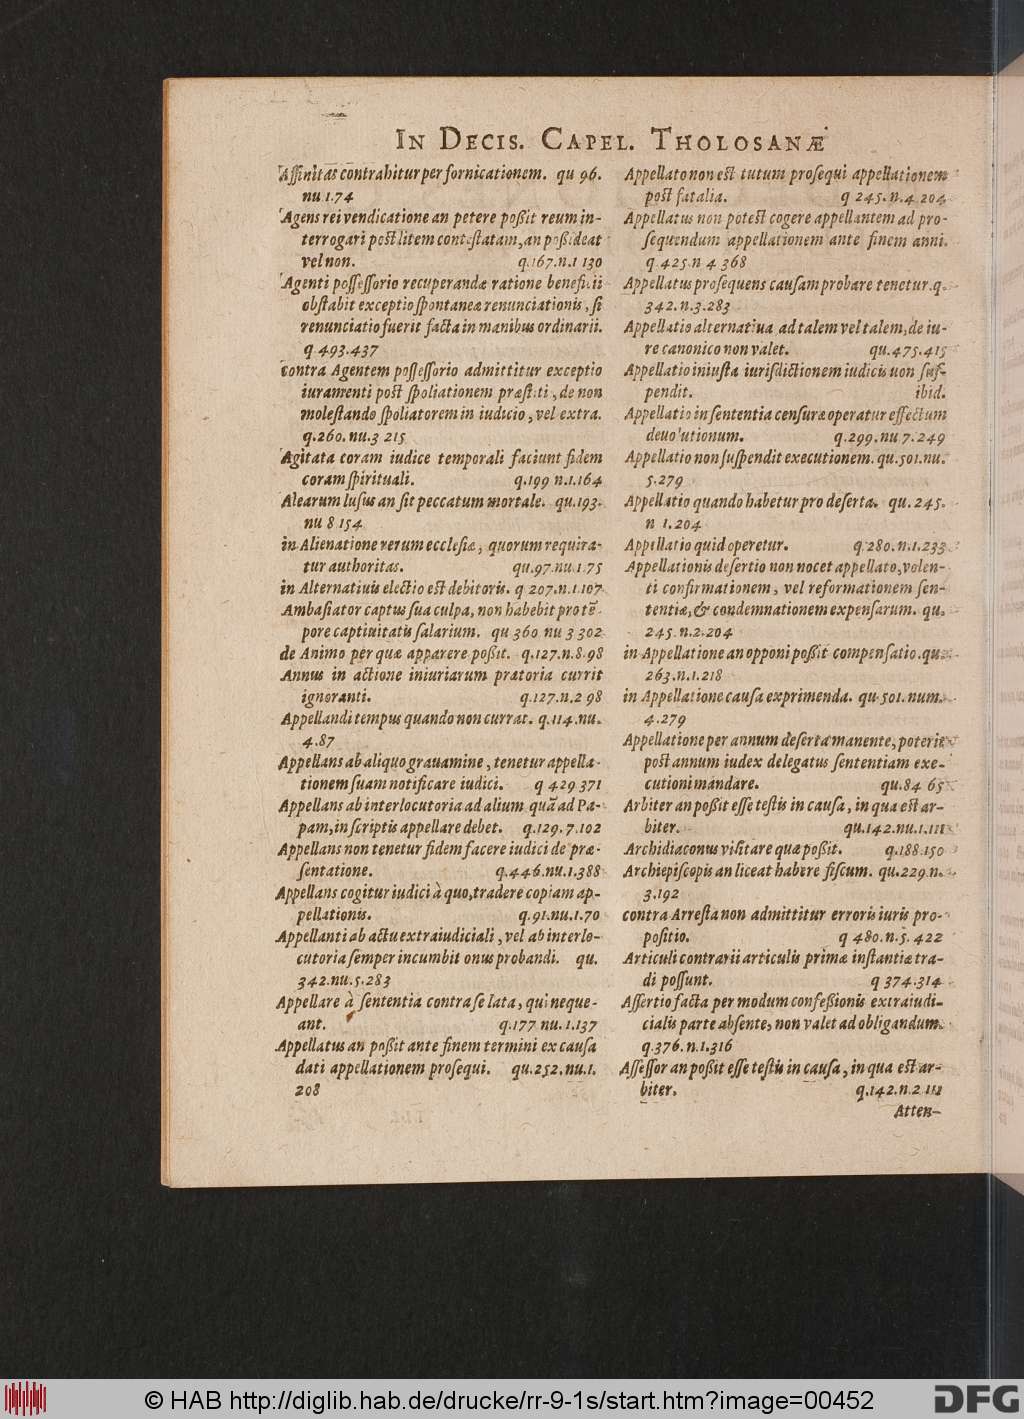 IN DECIS. CAPEL. THOLOSANÆ
Affinitas contrahitur per fornicationem. qu 96.
nu 1.74
Agens rei vendicatione an petere poßit reum in-
terrogari post litem contestatam, an poßideat
vel non. q.167.n.1 130
Agenti possessorio recuperandæ ratione beneficii
obstabit exceptio spontaneæ renunciationis, si
renunciatio fuerit facta in manibus ordinarii.
q 493.437
contra Agentem possessorio admittitur exceptio
iuramenti post spoliationem præstiti, de non
molestando spoliatorem in iudicio, vel extra.
q.260. nu.3 215
Agitata coram iudice temporali faciunt fidem
coram spirituali. q.199 n.1.164
Alearum lusus an sit peccatum mortale. qu.193.
nu 8 154
in Alienatione rerum ecclesiæ, quorum requira-
tur authoritas. qu.97.nu.1.75
in Alternatiuis electio est debitoris. q 207.n.1.107
Ambasiator captus sua culpa, non habebit pro tē-
pore captiuitatis salarium. qu 360 nu 3 302
de Animo per quæ apparere poßit. q.127.n.8.98
Annus in actione iniuriarum prætoria currit
ignoranti. q.127.n.2 98
Appellandi tempus quando non currat. q.114.nu.
4.87
Appellans ab aliquo grauamine, tenetur appella-
tionem suam notificare iudici. q 429 371
Appellans ab interlocutoria ad alium quā ad Pa-
pam, in scriptis appellare debet. q.129.7.102
Appellans non tenetur fidem facere iudici de præ-
sentatione. q.446.nu.1.388
Appellans cogitur iudici à quo, tradere copiam ap-
pellationis. q.91.nu.1.70
Appellanti ab actu extraiudiciali, vel ab interlo-
cutoria semper incumbit onus probandi. qu.
342.nu.5.283
Appellare à sententia contra se lata, qui neque-
ant. q.177 nu.1.137
Appellatus an poßit ante finem termini ex causa
dati appellationem prosequi. qu.252.nu.1.
208
Appellato non est tutum prosequi appellationem
post fatalia. q 245.n.4 204
Appellatus non potest cogere appellantem ad pro-
sequendum appellationem ante finem anni.
q.425.n 4 368
Appellatus prosequens causam probare tenetur.q.
342.n.3.283
Appellatio alternatiua ad talem vel talem, de iu-
re canonico non valet. qu.475.415
Appellatio iniusta iurisdictionem iudicis uon sus-
pendit. ibid.
Appellatio in sententia censuræ operatur effectum
deuo'utionum. q.299.nu 7.249
Appellatio non suspendit executionem. qu.501.nu.
5.279
Appellatio quando habetur pro deserta. qu. 245.
n 1.204
Appellatio quid operetur. q 280.n.1.233
Appellationis desertio non nocet appellato, volen-
ti confirmationem, vel reformationem sen-
tentiæ, & condemnationem expensarum. qu.
245.n.2.204
in Appellatione an opponi poßit compensatio. qu.
263.n.1.218
in Appellatione causa exprimenda. qu 501.num.
4.279
Appellatione per annum deserta manente, poterit
post annum iudex delegatus sententiam exe-
cutioni mandare. qu.84 65
Arbiter an poßit esse testis in causa, in qua est ar-
biter. qu.142.nu.1.111
Archidiaconus visitare quæ poßit. q.188.150
Archiepiscopis an liceat habere fiscum. qu.229.n.
3.192
contra Arresta non admittitur erroris iuris pro-
positio. q 480.n.5. 422
Articuli contrarii articulis primæ instantiæ tra-
di possunt. q 374.314
Assertio facta per modum confeßionis extraiudi-
cialis parte absente, non valet ad obligandum.
q.376.n.1.316
Assessor an poßit esse testis in causa, in qua est ar-
biter. q.142.n.2 111
Atten-
© HAB http://diglib.hab.de/drucke/rr-9-1s/start.htm?image=00452
DFG